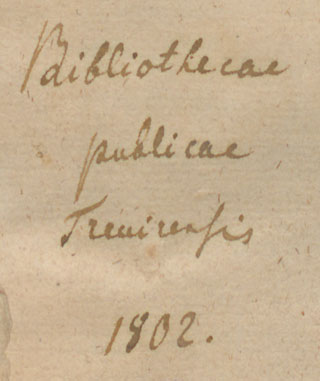 Bibliothecae
publicae
Treuirensis
1802.